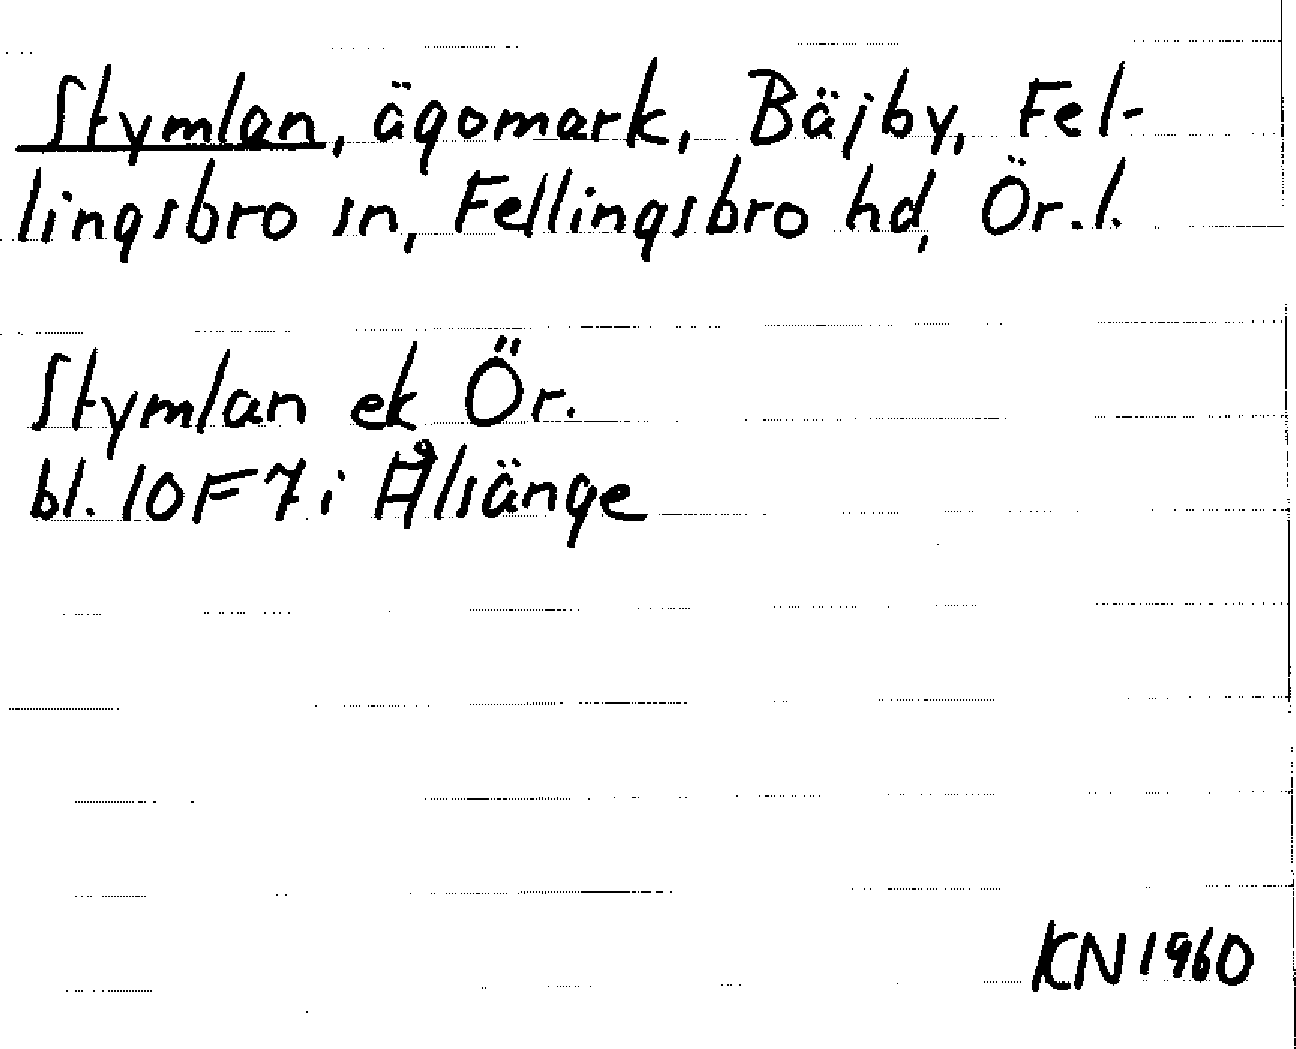 Stymlan, ägomark, Bäjby, Fel-
lingsbro sn, Fellingsbro hd, Ör. l.
Stymlan ek Ör.
bl. 10F7i Ålsänge
KN 1960